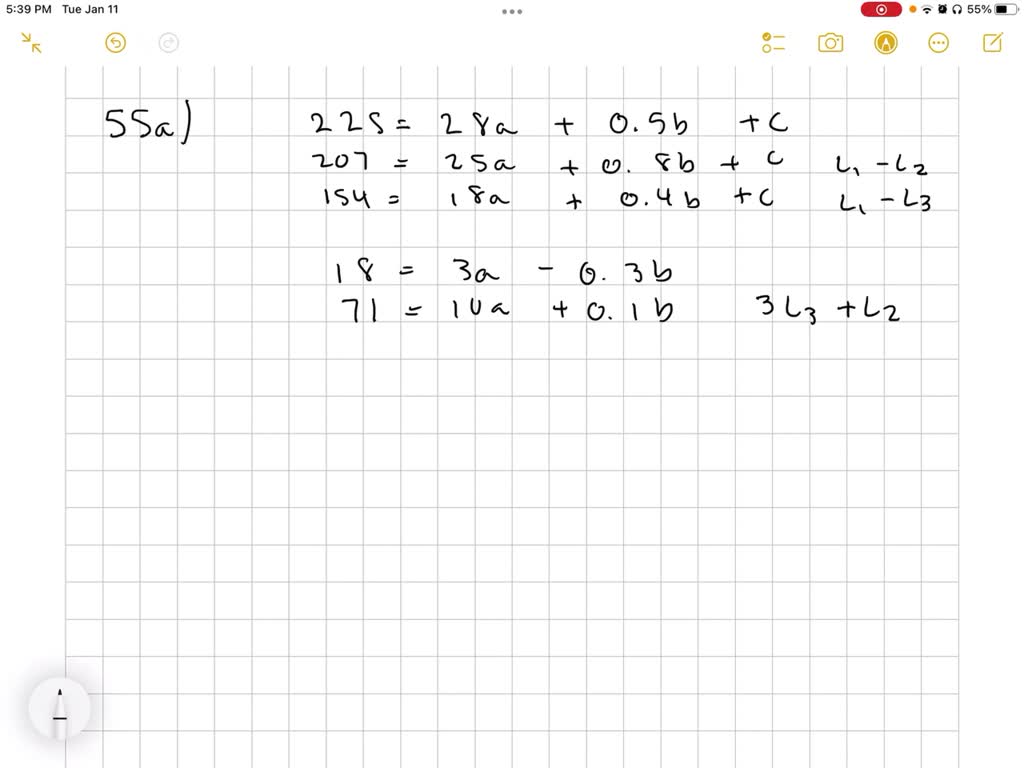 5:39 PM Tue Jan 11 55%
55a) 225 = 28a + 0.5b + C
207 = 25a + 0.8b + C L1 - L2
154 = 18a + 0.4b + C L1 - L3
18 = 3a - 0.3b
71 = 10a + 0.1b 3L3 + L2